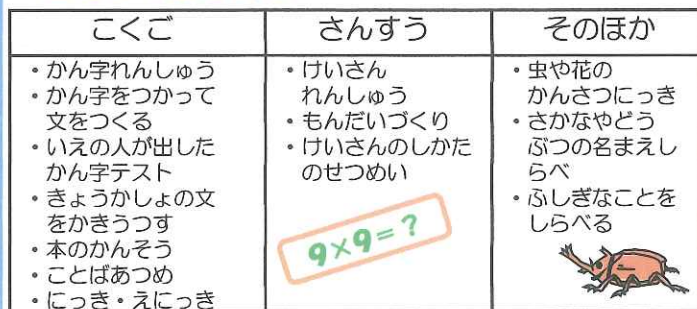 こくご
・かん字れんしゅう
・かん字をつかって
文をつくる
・いえの人が出した
かん字テスト
・きょうかしょの文
をかきうつす
・本のかんそう
・ことばあつめ
・にっき・えにっき
さんすう
・けいさん
れんしゅう
・もんだいづくり
・けいさんのしかた
のせつめい
9×9=?
そのほか
・虫や花の
かんさつにっき
・さかなやどう
ぶつの名まえし
らべ
・ふしぎなことを
しらべる